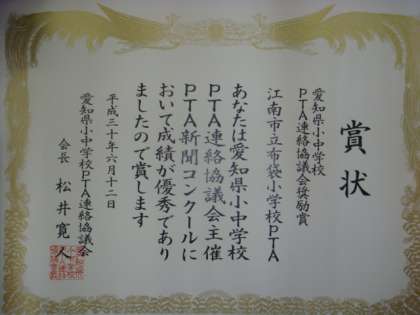 賞状
愛知県小中学校
PTA連絡協議会奨励賞
江南市立布袋小学校PTA
あなたは愛知県小中学校
PTA連絡協議会主催
PTA新聞コンクールに
おいて成績が優秀であり
ましたので賞します
平成三十年六月十二日
愛知県小中学校PTA連絡協議会
会長 松井寛人